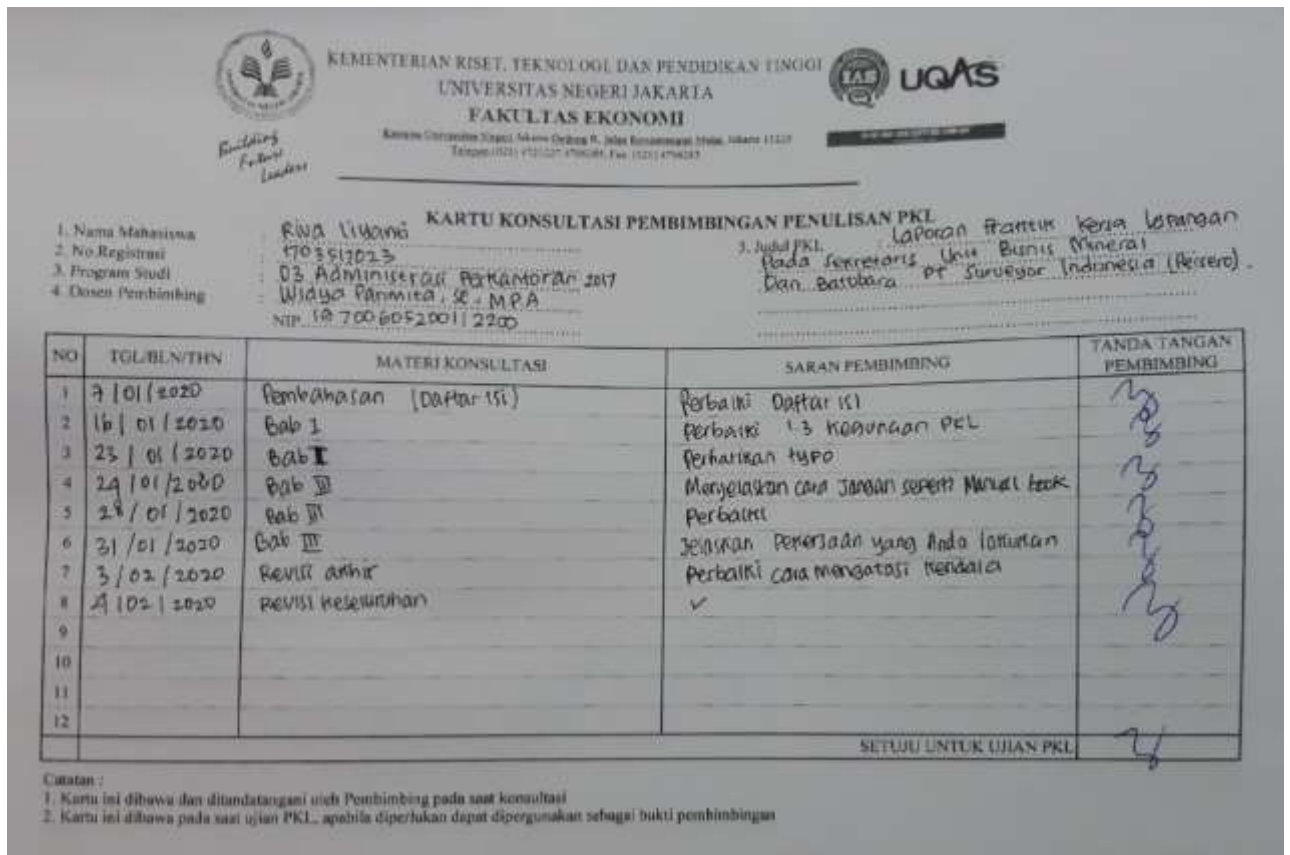 KEMENTERIAN RISET, TEKNOLOGI, DAN PENDIDIKAN TINGGI
UNIVERSITAS NEGERI JAKARTA
FAKULTAS EKONOMI
Building
Future
Leaders
UQAS
KARTU KONSULTASI PEMBIMBINGAN PENULISAN PKL
1. Nama Mahasiswa : Riva Liyani
2. No.Registrasi : 1703517023
3. Program Studi : D3 Administrasi Perkantoran 2017
4. Dosen Pembimbing : Widya Parimita, SE, MPA
NIP. 19700605200112200
5. Judul PKL : Laporan Praktik Kerja Lapangan
Pada Sekretaris Unit Bisnis Mineral
Dan Batubara PT Surveyor Indonesia (Persero).
NO TGL/BLN/THN MATERI KONSULTASI SARAN PEMBIMBING TANDA TANGAN PEMBIMBING
1 7/01/2020 Pembahasan (Daftar isi) Perbaiki Daftar isi
2 16/01/2020 Bab I Perbaiki 1.3 Kegunaan PKL
3 23/01/2020 Bab I Perhatikan typo
4 24/01/2020 Bab III Menjelaskan cara Jangan seperti Manual Book
5 28/01/2020 Bab III Perbaiki
6 31/01/2020 Bab III Jelaskan Pekerjaan yang Anda lakukan
7 3/02/2020 Revisi akhir Perbaiki cara mengatasi kendala
8 4/02/2020 Revisi keseluruhan ✓
9
10
11
12
SETUJU UNTUK UJIAN PKL
Catatan :
1. Kartu ini dibawa dan ditandatangani oleh Pembimbing pada saat konsultasi
2. Kartu ini dibawa pada saat ujian PKL, apabila diperlukan dapat dipergunakan sebagai bukti pembimbingan